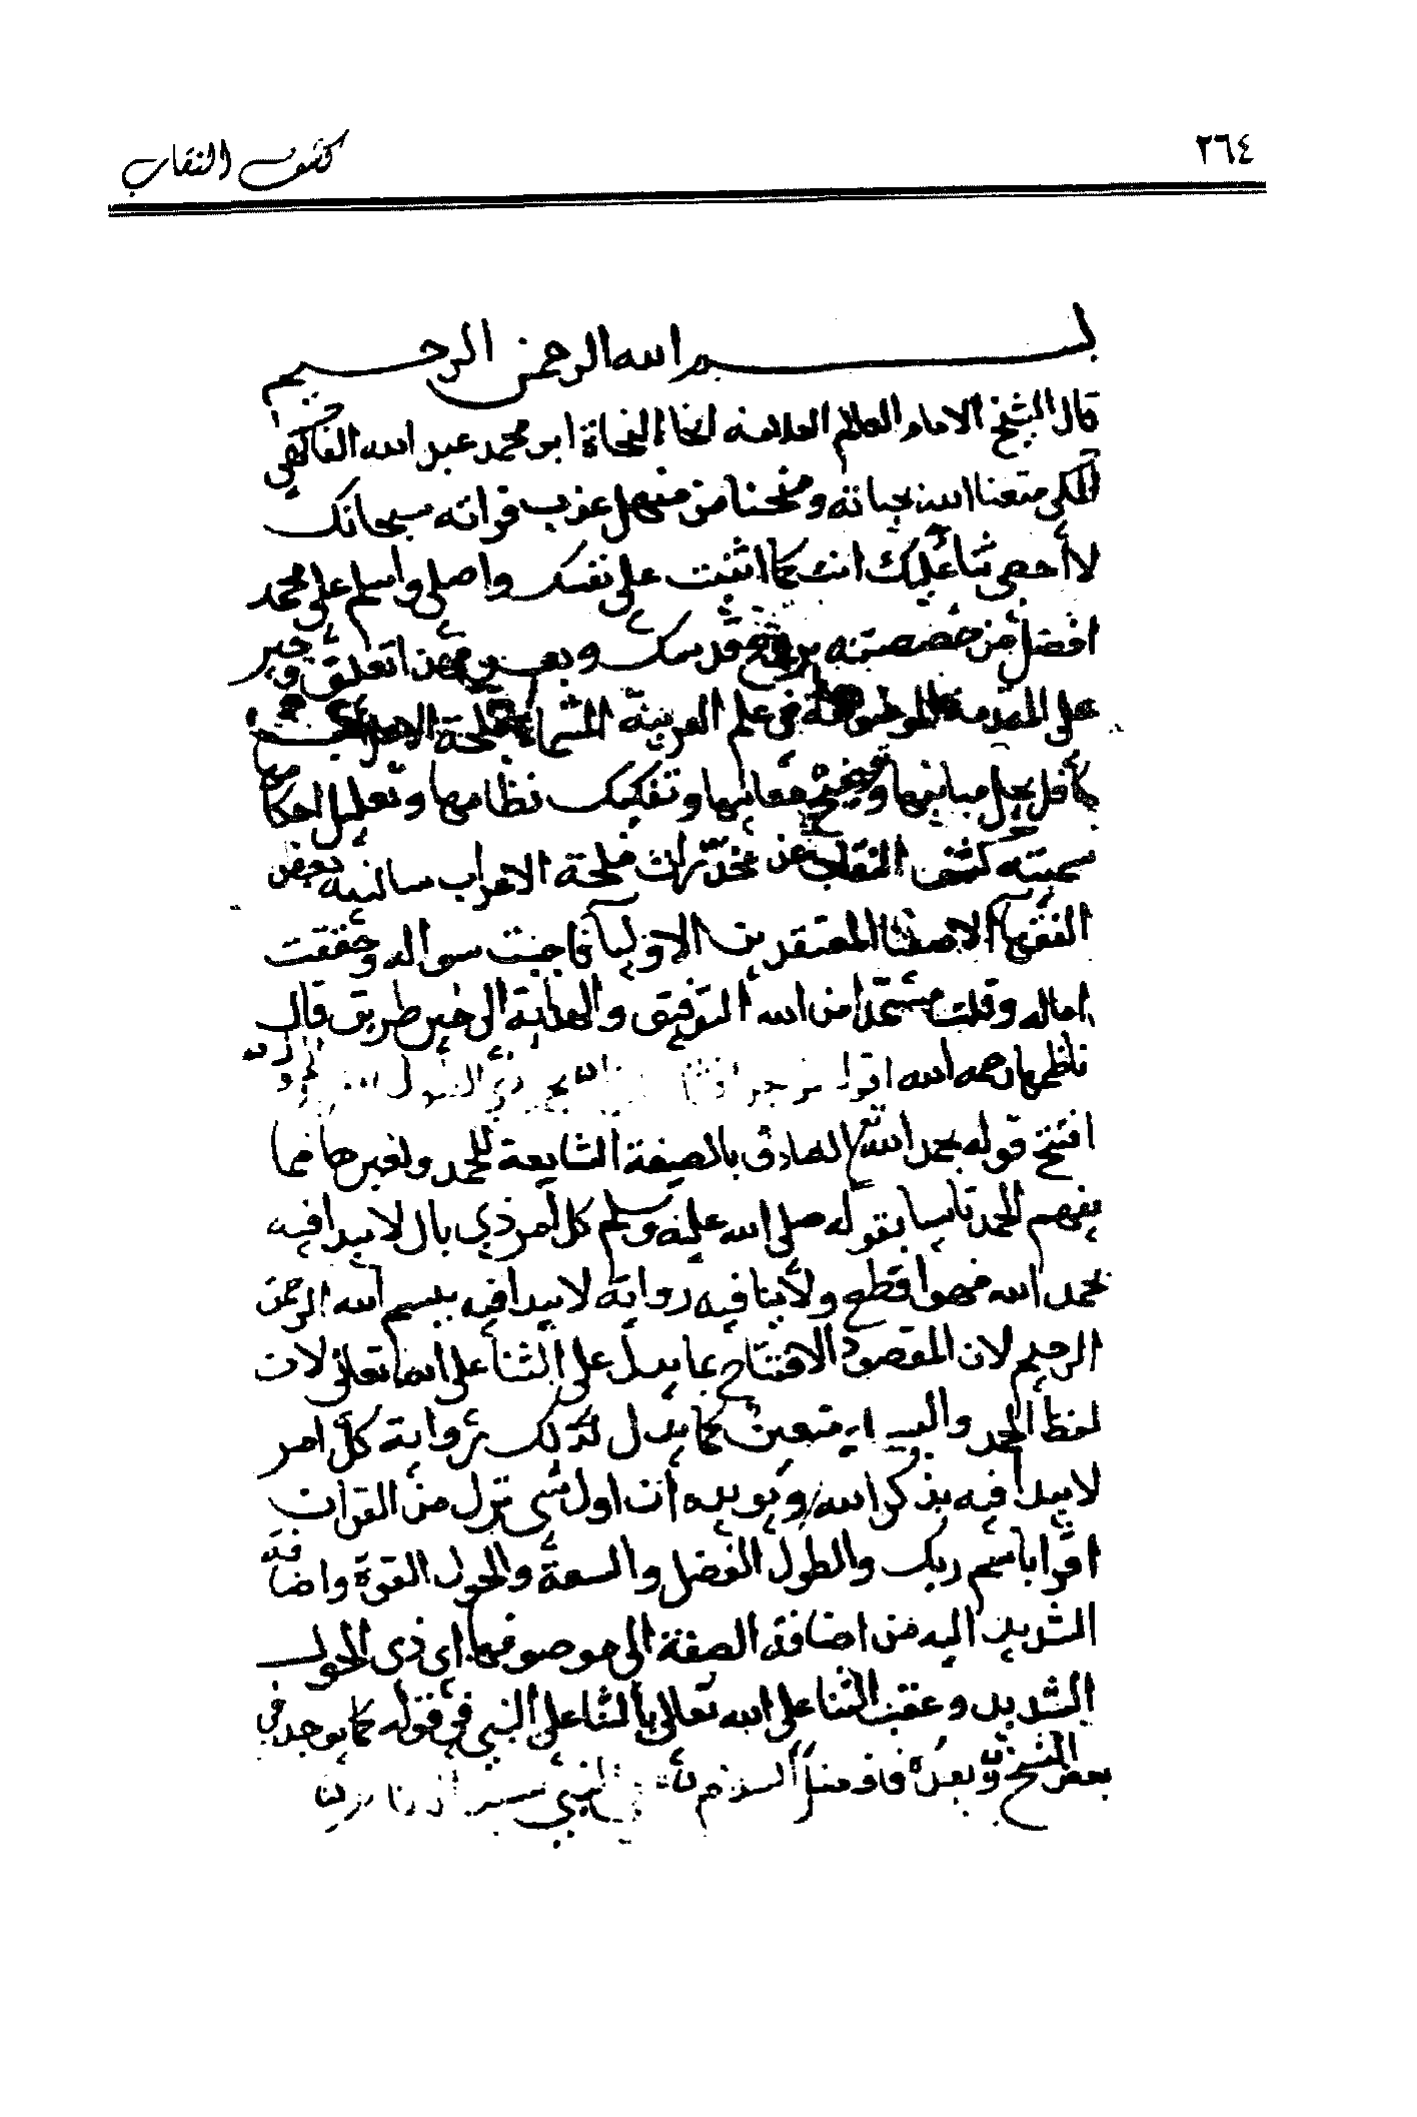 ٢٦٤
كشف النقاب
بسم الله الرحمن الرحيم
قال الشيخ الامام العالم العلامه انحا النحاة ابو محمد عبد الله الفاكهي
المكي متعنا الله بحياته ومنحنا من منهل عذب فراته سبحانك
لا أحصى ثنا عليك انت كما اثنيت على نفسك واصلى واسلم على محمد
افضل من خصصته بروح قدسك وبعد فهذا تعليق وجيز
على المقدمة الموضوعة في علم العربية المسماة بملحة الاعراب
كافل بحل مبانيها وتوضيح معانيها وتفكيك نظامها وتعليل احكامها
سميته كشف النقاب عن مخدّرات ملحة الاعراب سالنيه بعض
الفقهآ الاصفيا المعتقدين الاوليآ فاجبت سواله وحققت
اماله وقلت مستمدا من الله التوفيق والهداية الى خير طريق قال
ناظمها رحمه الله اقول من بعد افتتاح القول بحمد ذي الطول
افتتح قوله بحمد الله تعالى الصادق بالصيغة الشايعة للحمد ولغيرها مما
يفهم الحمد تاسيا بقوله صلى الله عليه وسلم كل امر ذي بال لا يبدا فيه
بحمد الله فهو اقطع ولا ينافيه رواية لا يبدا فيه ببسم الله الرحمن
الرحيم لان المقصود الافتتاح بما يدل على الثنا على الله تعالى لا ان
لفظ الحمد والبسملة متعين كما يدل لذلك رواية كل امر
لا يبدا فيه بذكر الله ويويده أن اول شي نزل من القران
اقرا باسم ربك والطول الفضل والسعة والحول القوة واضافة
الشديد اليه من اضافة الصفة الى موصوفها اي ذي الحول
الشديد وعقب الثنا على الله تعالى بالثنا على النبي في قوله كما يوجد في
بعض النسخ وبعده فافضل السلام على النبي سيد الانام